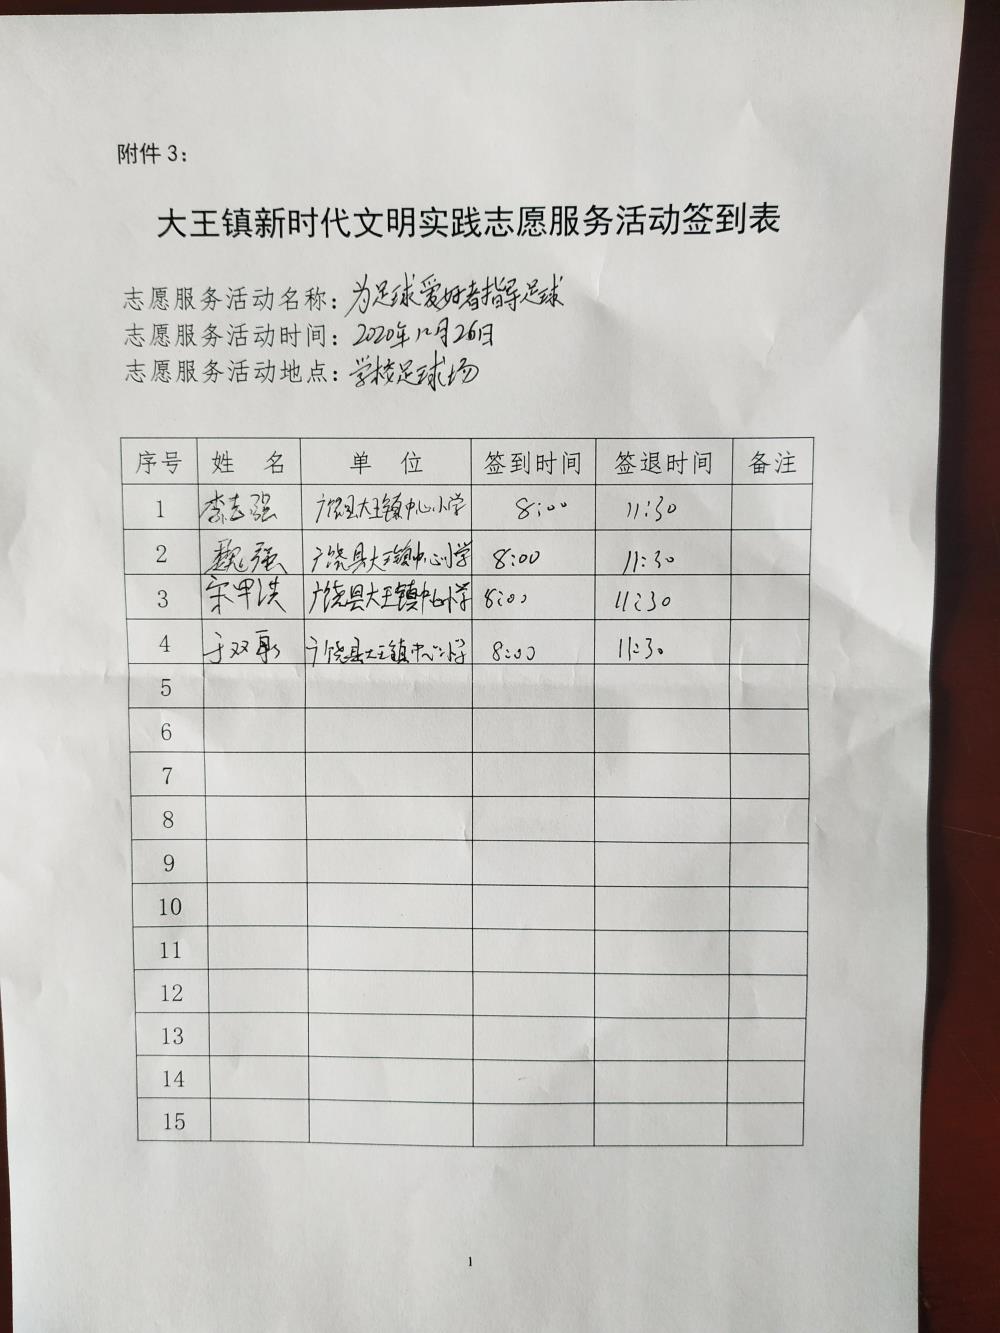 附件 3:
大王镇新时代文明实践志愿服务活动签到表
志愿服务活动名称: 为足球爱好者指导足球
志愿服务活动时间: 2020年12月26日
志愿服务活动地点: 学校足球场
序号 姓 名 单 位 签到时间 签退时间 备注
1 李志强 广饶县大王镇中心小学 8:00 11:30
2 魏强 广饶县大王镇中心小学 8:00 11:30
3 宋甲洪 广饶县大王镇中心小学 8:00 11:30
4 于双 广饶县大王镇中心小学 8:00 11:30
5
6
7
8
9
10
11
12
13
14
15
1